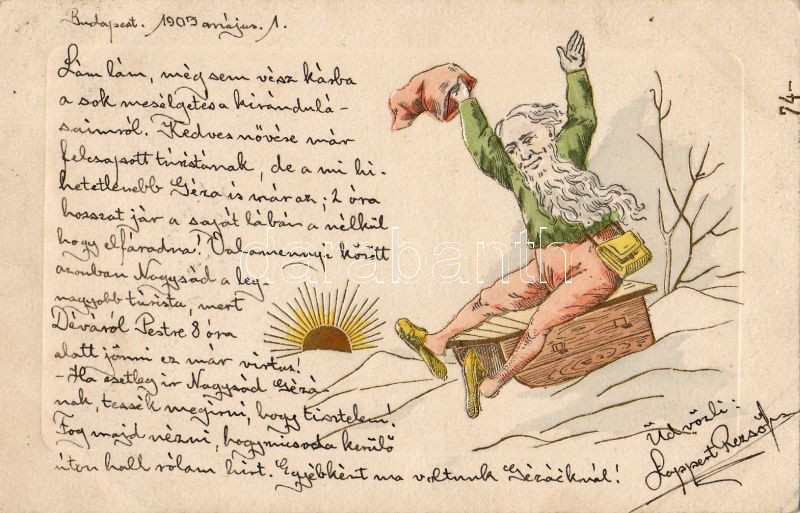 Budapest. 1903 május. 1.
Lám lám, mégsem vész kárba
a sok mesélgetés a kirándulá-
saimról. Kedves nővére már
felcsapott túristának, de a mi hi-
hetetlenebb Géza is már az; 2 óra
hosszat jár a saját lábán a nélkül
hogy elfáradna! Valamennyi között
azonban Nagysád a leg-
nagyobb túrista, mert
Déváról Pestre 8 óra
alatt jönni ez már virtus!
- Ha esetleg ir Nagysád Gézá-
nak, tessék megirni, hogy tisztelem!
Fog majd nézni, hogy micsoda kerülő
úton hall rólam hirt. Egyébként ma voltunk Gézáéknál!
Üdvözli:
Lappert Rezső
74-
darabanth